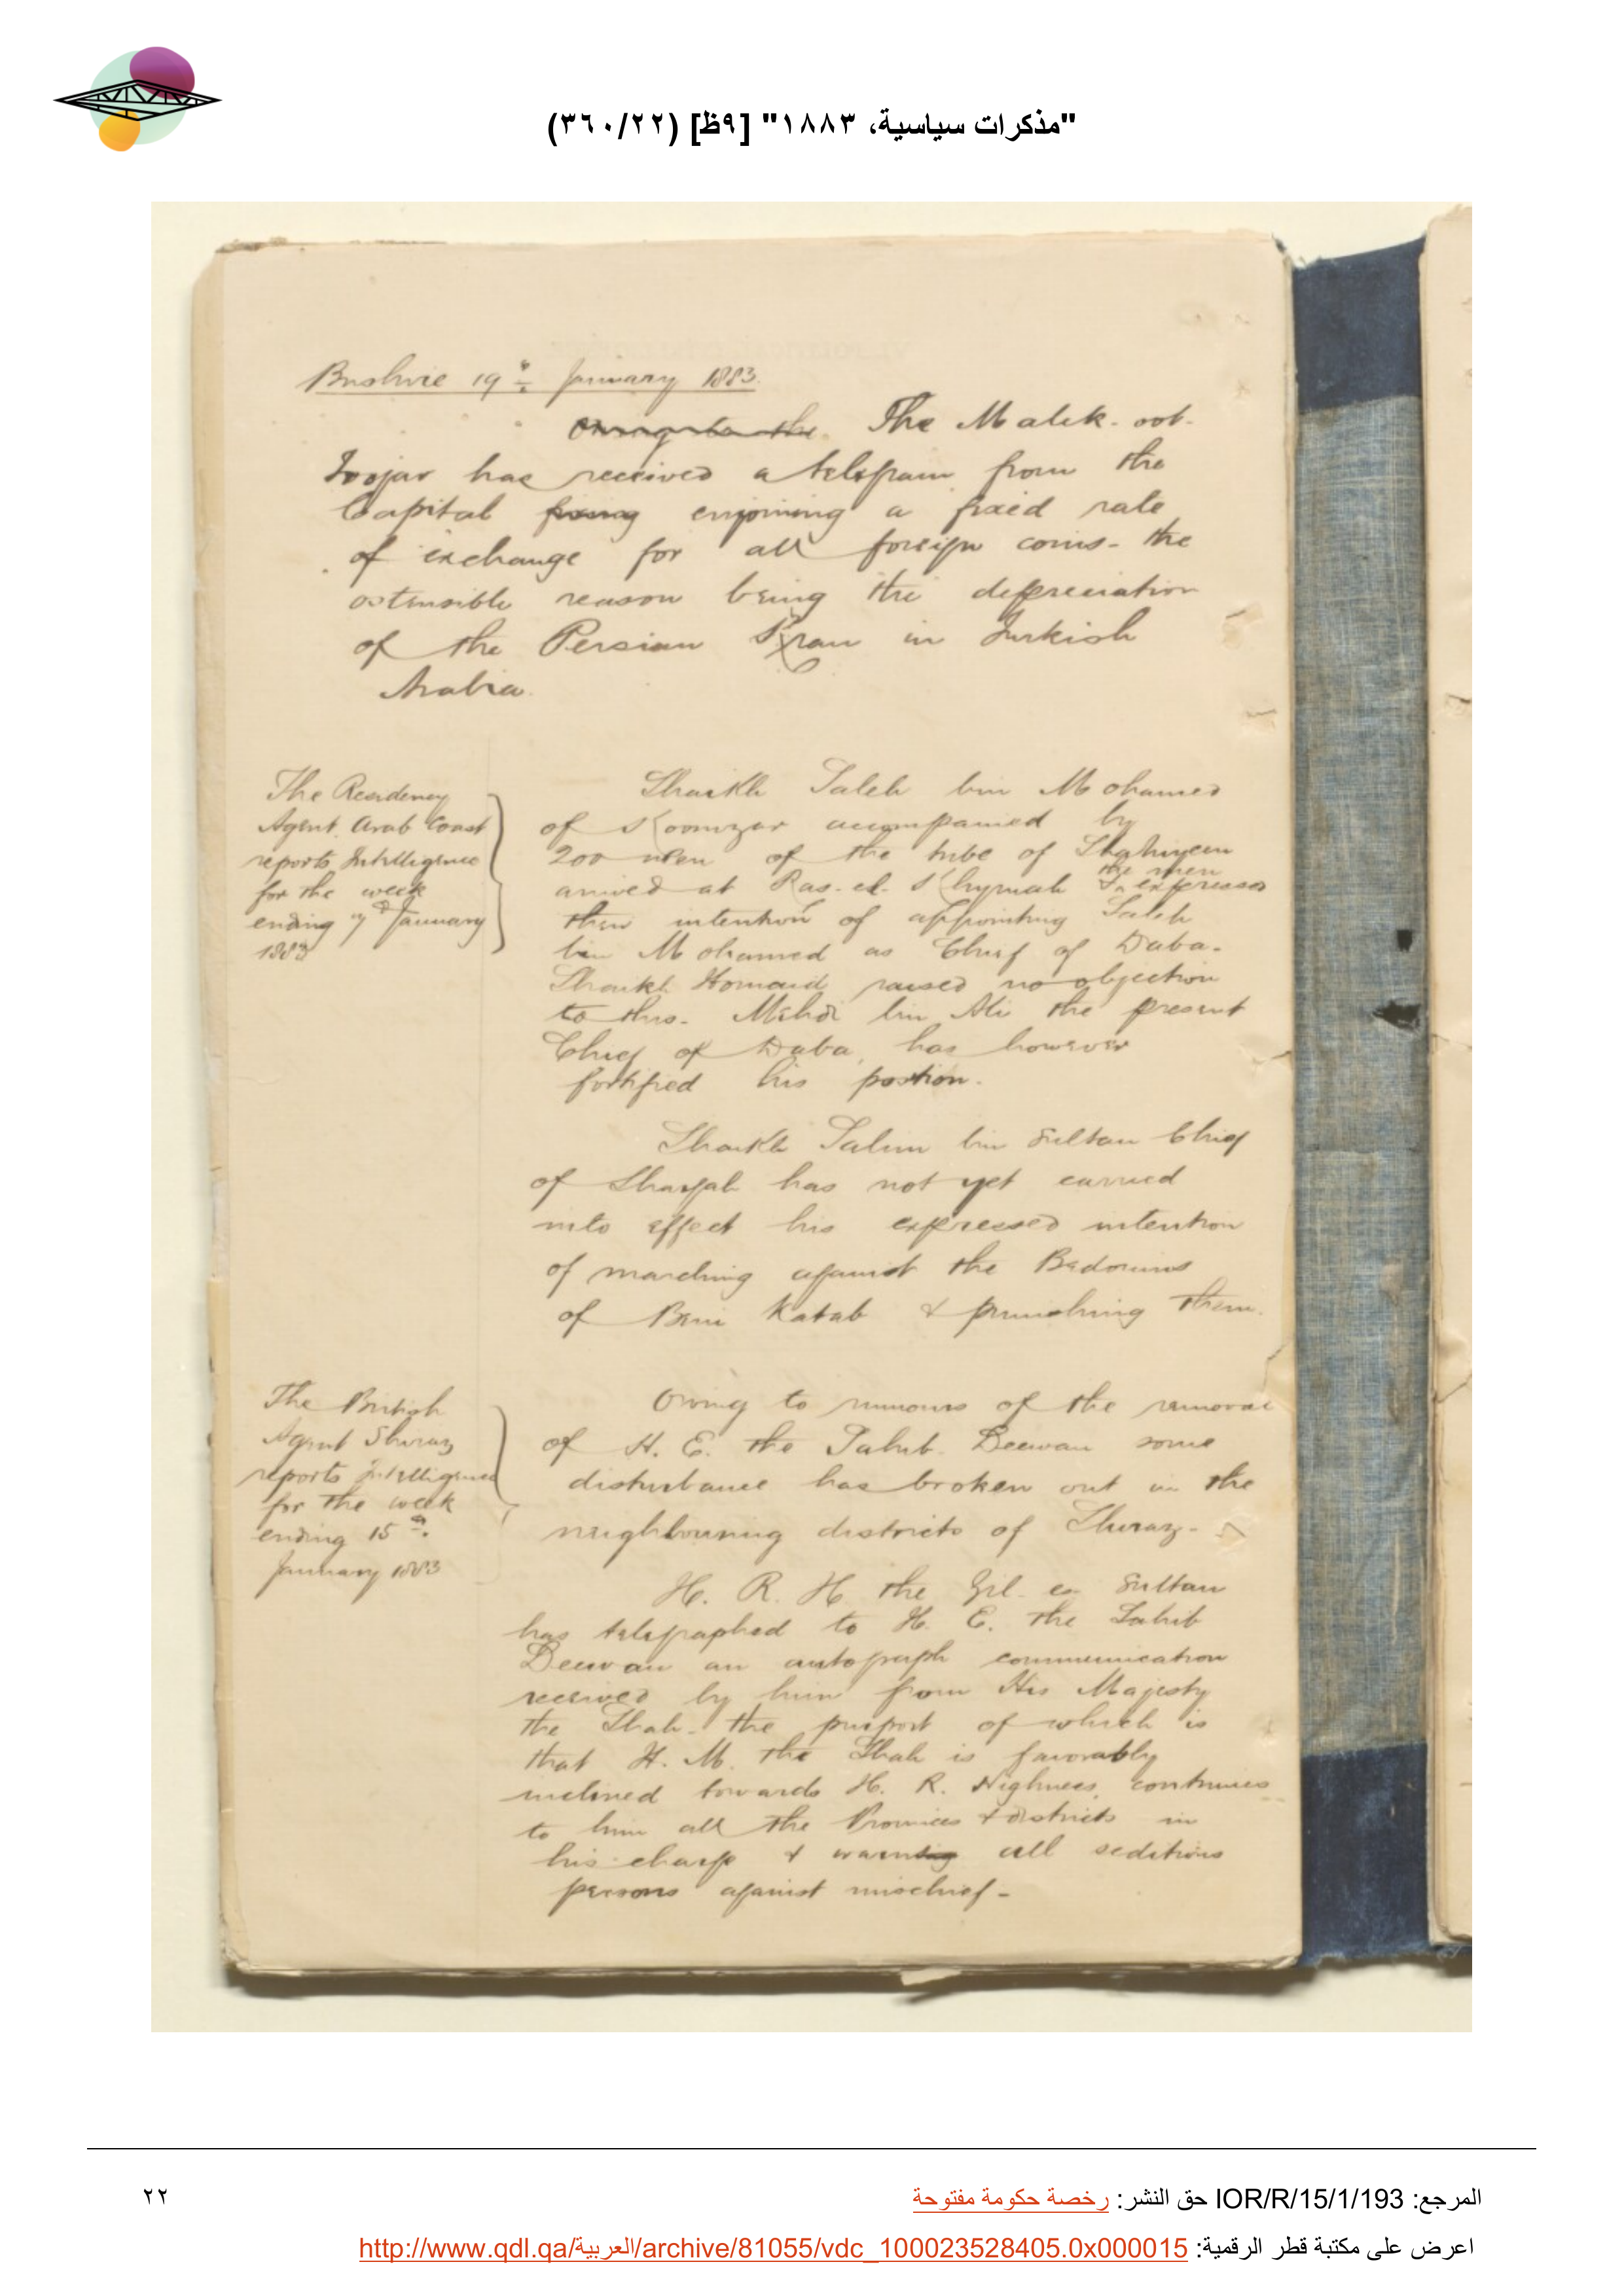 "مذكرات سياسية، ١٨٨٣" [٩ظ] (٣٦٠/٢٢)
Bushire 19th January 1883.
Owing to the The Malek-oot-
Toojar has received a telegram from the
Capital fixing enjoining a fixed rate
of exchange for all foreign coins - the
ostensible reason being the depreciation
of the Persian Kran in Turkish
Arabia.
The Residency
Agent Arab Coast
reports Intelligence
for the week
ending 7th January
1883
Shaikh Saleh bin Mohamed
of Koomzar accompanied by
200 men of the tribe of Shahiyeen
arrived at Ras-el-Khymah & the men expressed
their intention of appointing Saleh
bin Mohamed as Chief of Daba.
Shaikh Homaid raised no objection
to this. Mehdi bin Ali the present
Chief of Daba, has however
fortified his position.
Shaikh Salim bin Sultan Chief
of Shargah has not yet carried
into effect his expressed intention
of marching against the Bedouins
of Beni Katab & punishing them.
The British
Agent Shiraz
reports Intelligence
for the week
ending 15th
January 1883
Owing to rumours of the removal
of H. E. the Sahib Deewan some
disturbance has broken out in the
neighbouring districts of Shiraz -
H. R. H the Zil-es-Sultan
has telegraphed to H. E. the Sahib
Deewan an autograph communication
received by him from His Majesty
the Shah - the purport of which is
that H. M. the Shah is favorably
inclined towards H. R. Highness, continues
to him all the Provinces & districts in
his charge & warning all seditious
persons against mischief -
المرجع: IOR/R/15/1/193 حق النشر: رخصة حكومة مفتوحة
٢٢
اعرض على مكتبة قطر الرقمية: http://www.qdl.qa/العربية/archive/81055/vdc_100023528405.0x000015